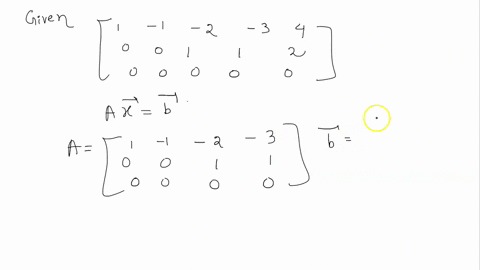 Given [ 1 -1 -2 -3 4
0 0 1 1 2
0 0 0 0 0 ]
A x⃗ = b⃗
A = [ 1 -1 -2 -3
0 0 1 1
0 0 0 0 ] b⃗ =